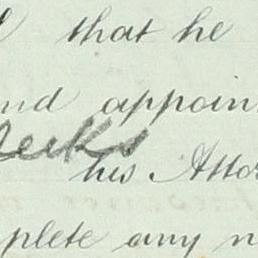 that he
nd appoin
his Atto
plete any